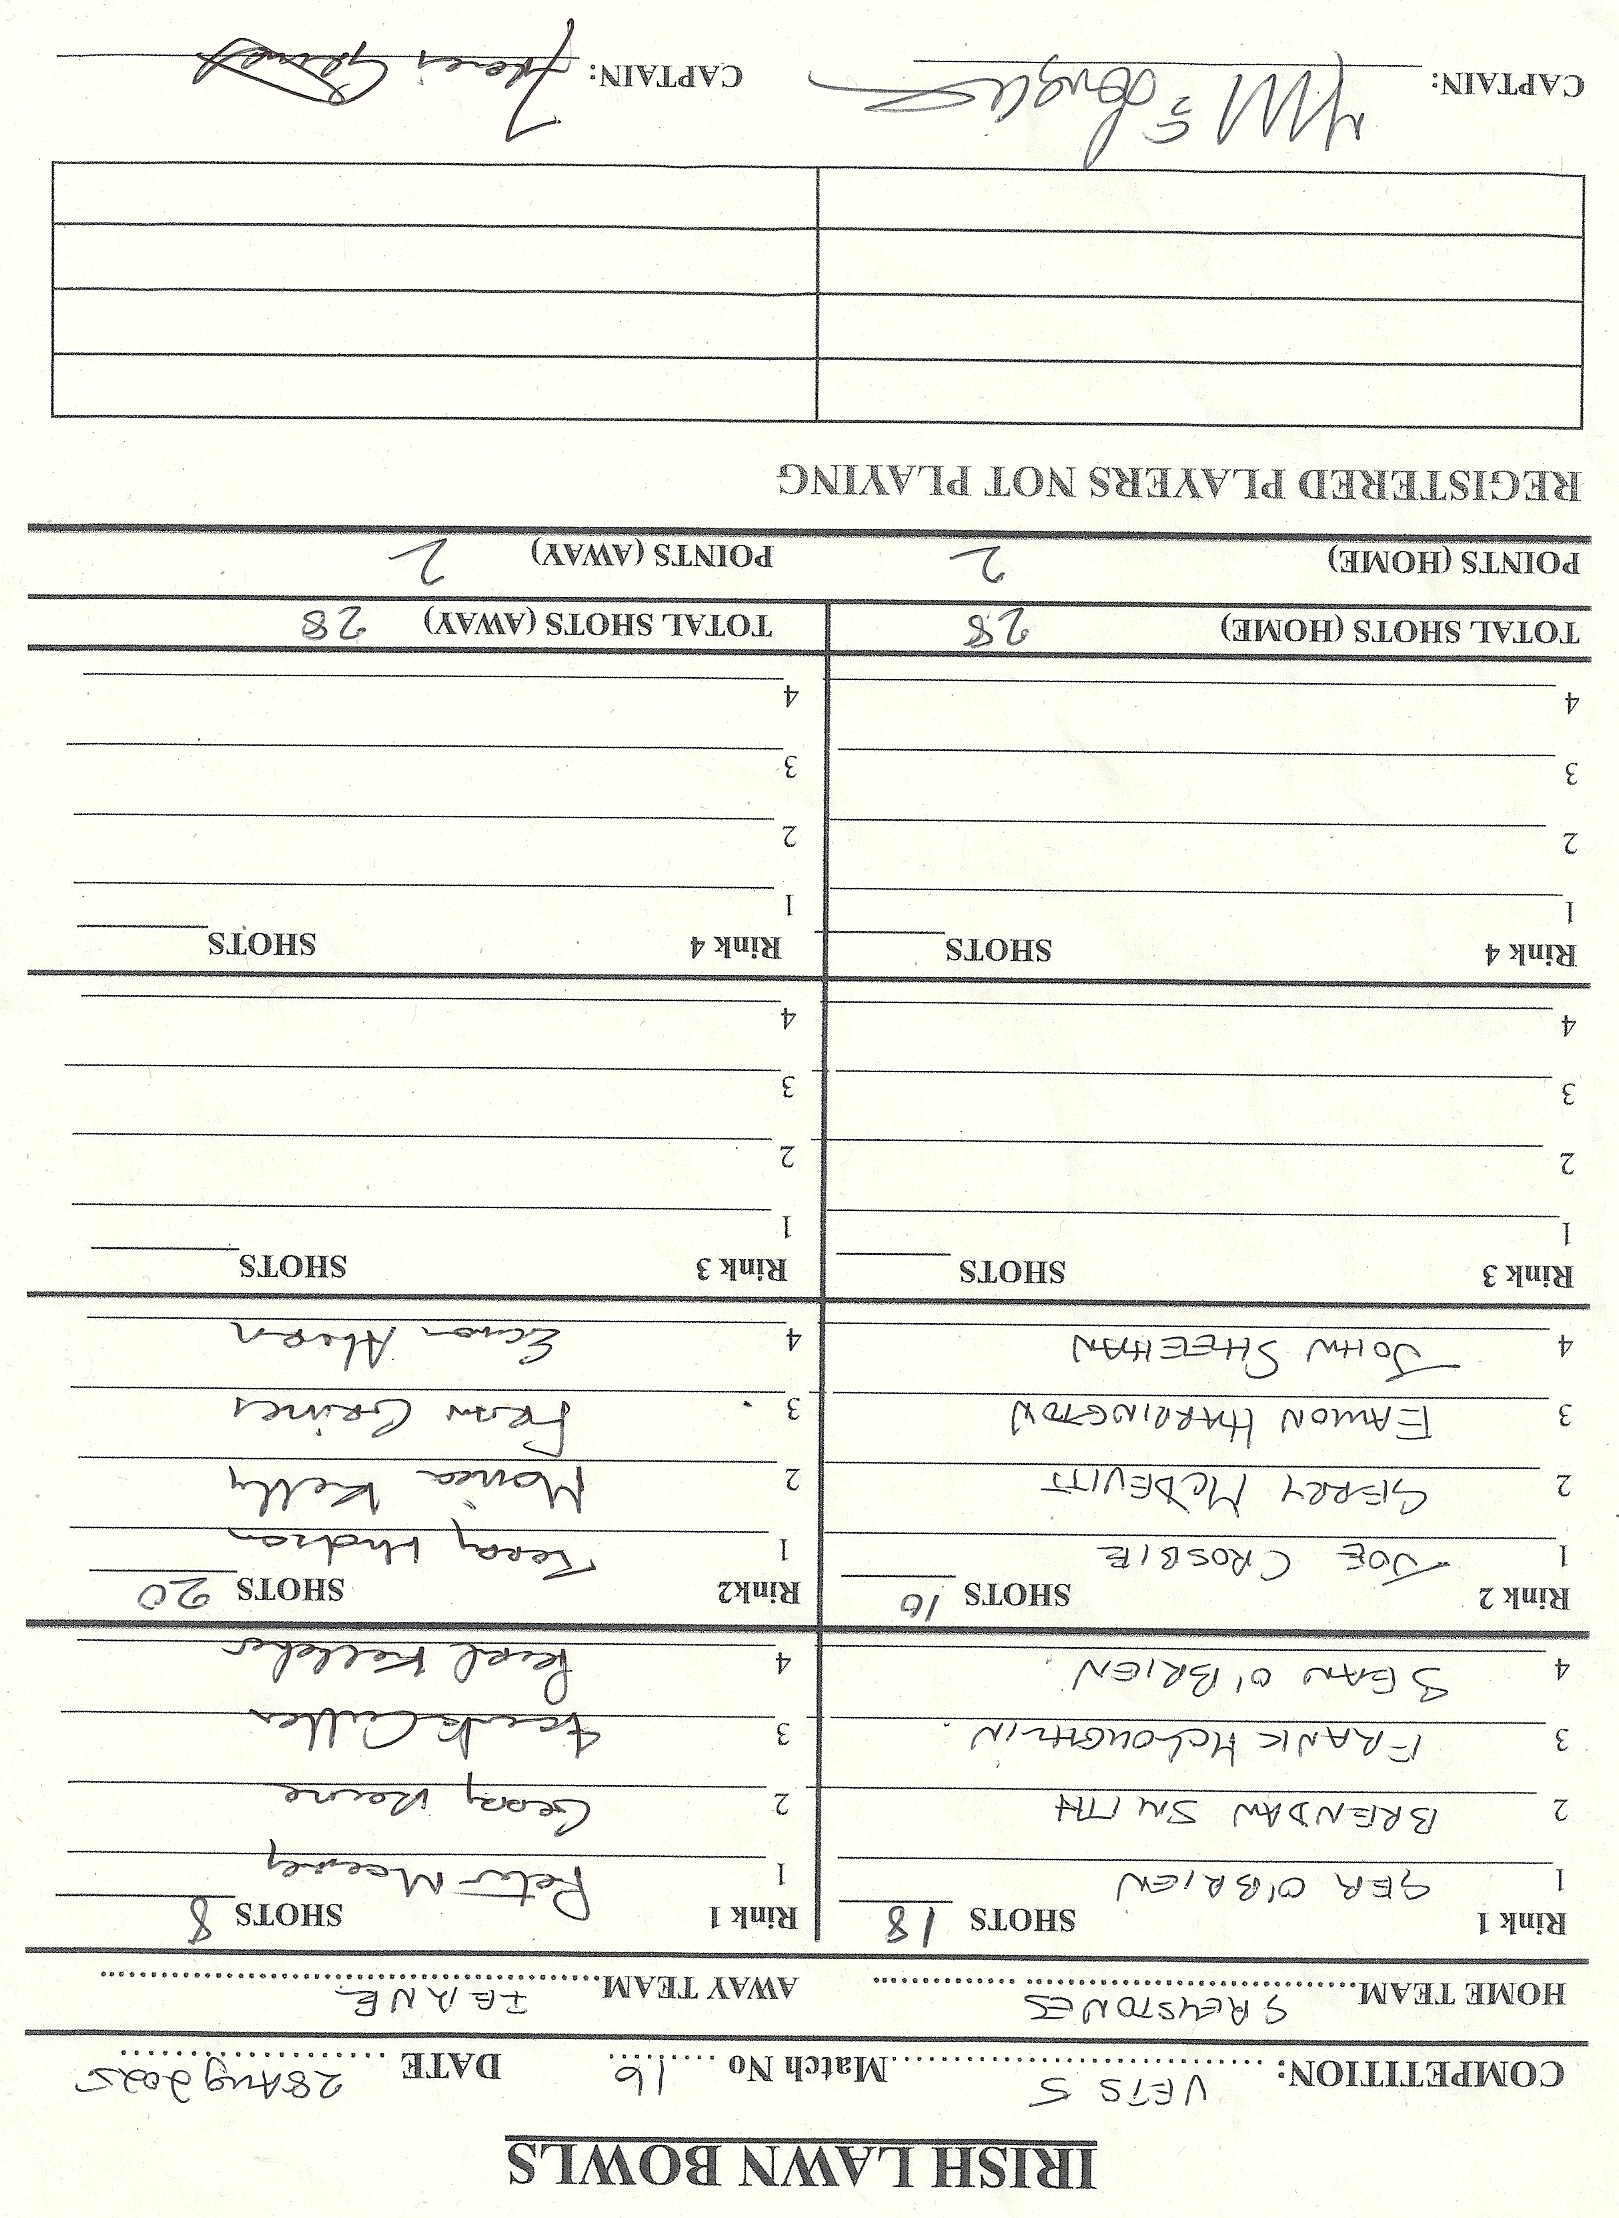 IRISH LAWN BOWLS
COMPETITION: VETS 5 Match No 16 DATE 28 Aug 2025
HOME TEAM GREYSTONES AWAY TEAM
Rink 1 SHOTS 18 Rink 1 SHOTS 8
1 GER O'BRIEN 1 Peter
2 BRENDAN SMITH 2 Gerry
3 FRANK McLOUGHLIN 3 Frank Cullen
4 SEAN O'BRIEN 4 Kelleher
Rink 2 SHOTS 10 Rink2 SHOTS 20
1 JOE CROSBIE 1 Hudson
2 GERRY McDEVITT 2 Monica Kelly
3 EAMON HARRINGTON 3 Fran Grimes
4 JOHN SHEEHAN 4 Ahern
Rink 3 SHOTS Rink 3 SHOTS
1 1
2 2
3 3
4 4
Rink 4 SHOTS Rink 4 SHOTS
1 1
2 2
3 3
4 4
TOTAL SHOTS (HOME) 28 TOTAL SHOTS (AWAY) 28
POINTS (HOME) 2 POINTS (AWAY) 2
REGISTERED PLAYERS NOT PLAYING
CAPTAIN: CAPTAIN: